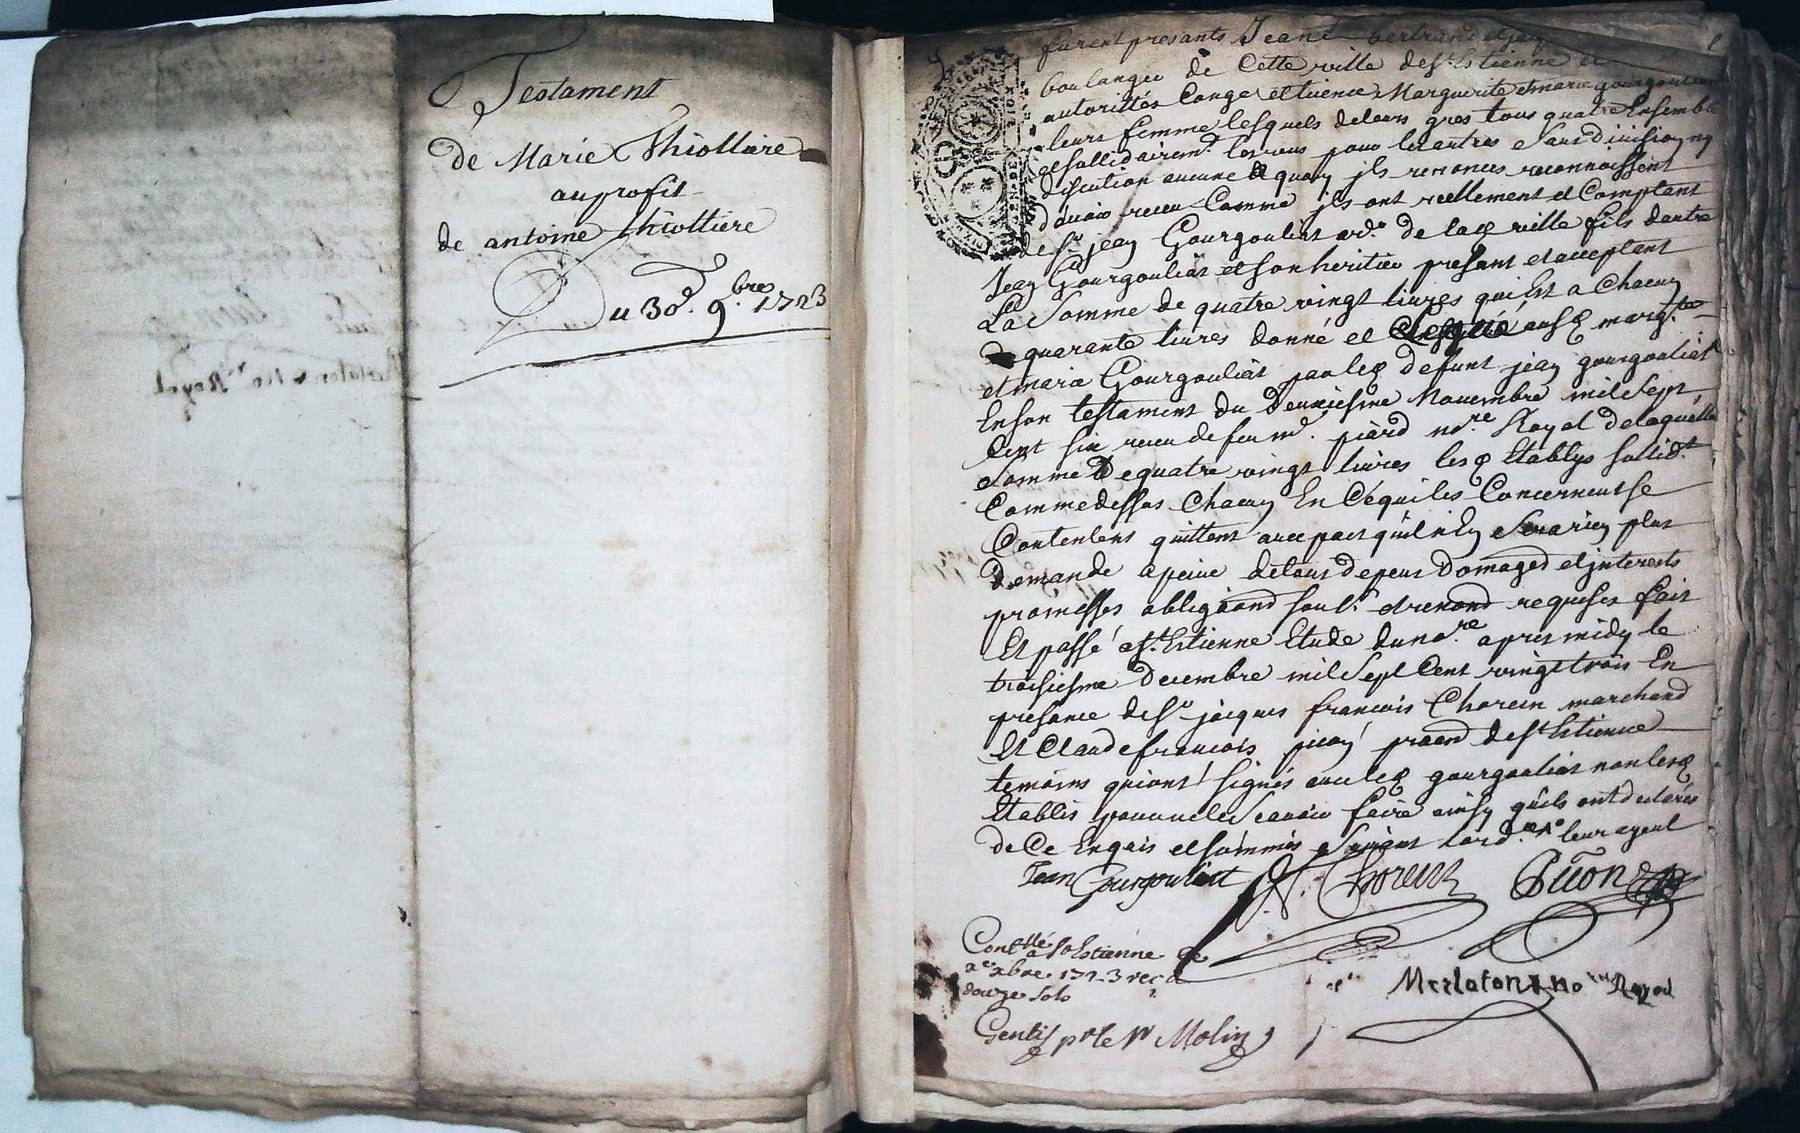 Testament
de Marie Thiolliere
au profit
de antoine thiolliere
Du 30e. 9.bre 1723
furent presants Jean bertrand
boulanger de Cette ville de St. Estienne et
autorittés Conge et Marguerite et marie gourgouliat
leurs femme lesquels de leurs gres tous quatre Ensemble
et sollidairemt. les uns pour les autres sans division ny
discution aucune a quoy jls renonces reconnoissent
d'avoir receu Comme jls ont reellement et Comptant
de Sr. jean Gourgouliat de laq ville fils dautre
Jean Gourgouliat et son heritier presant et acceptant
La Somme de quatre vingt livres qui Est a Chacun
quarante livres donné et ausq marg.te
et marie Gourgouliat par leq defunt jean gourgouliat
En son testament du deuxiesme Novembre mil sept
Cent six receu de feu me. piard no.re Royal de laquelle
somme de quatre vingt livres lesq Etablys sollidt.
Comme dessus Chacun En Ce qui les Concerne se
Contentent quittent avec pact quil n'En sera rien plus
demandé a peine de tous depens domages et jnterests
promesses obligaond soubt. et renond requises fait
Et passé a St. Estienne Etude du no.re apres midy le
troisiesme decembre mil sept Cent vingt trois En
presance de Sr. jacques francois Chorein marchand
Et Claude francois picon praend de St Estienne
temoins qui ont signés avec leq gourgouliat non lesq
Etablis pour ne le scavoir faire ainsy quils ont declarés
de Ce Enquis et sommés suivant lord.ce
Jean Gourgouliat Chorein Picon
Contllé a St Estienne le
xbre 1723 rec
douze sols
Gentil pr le Sr Molin
no Royal